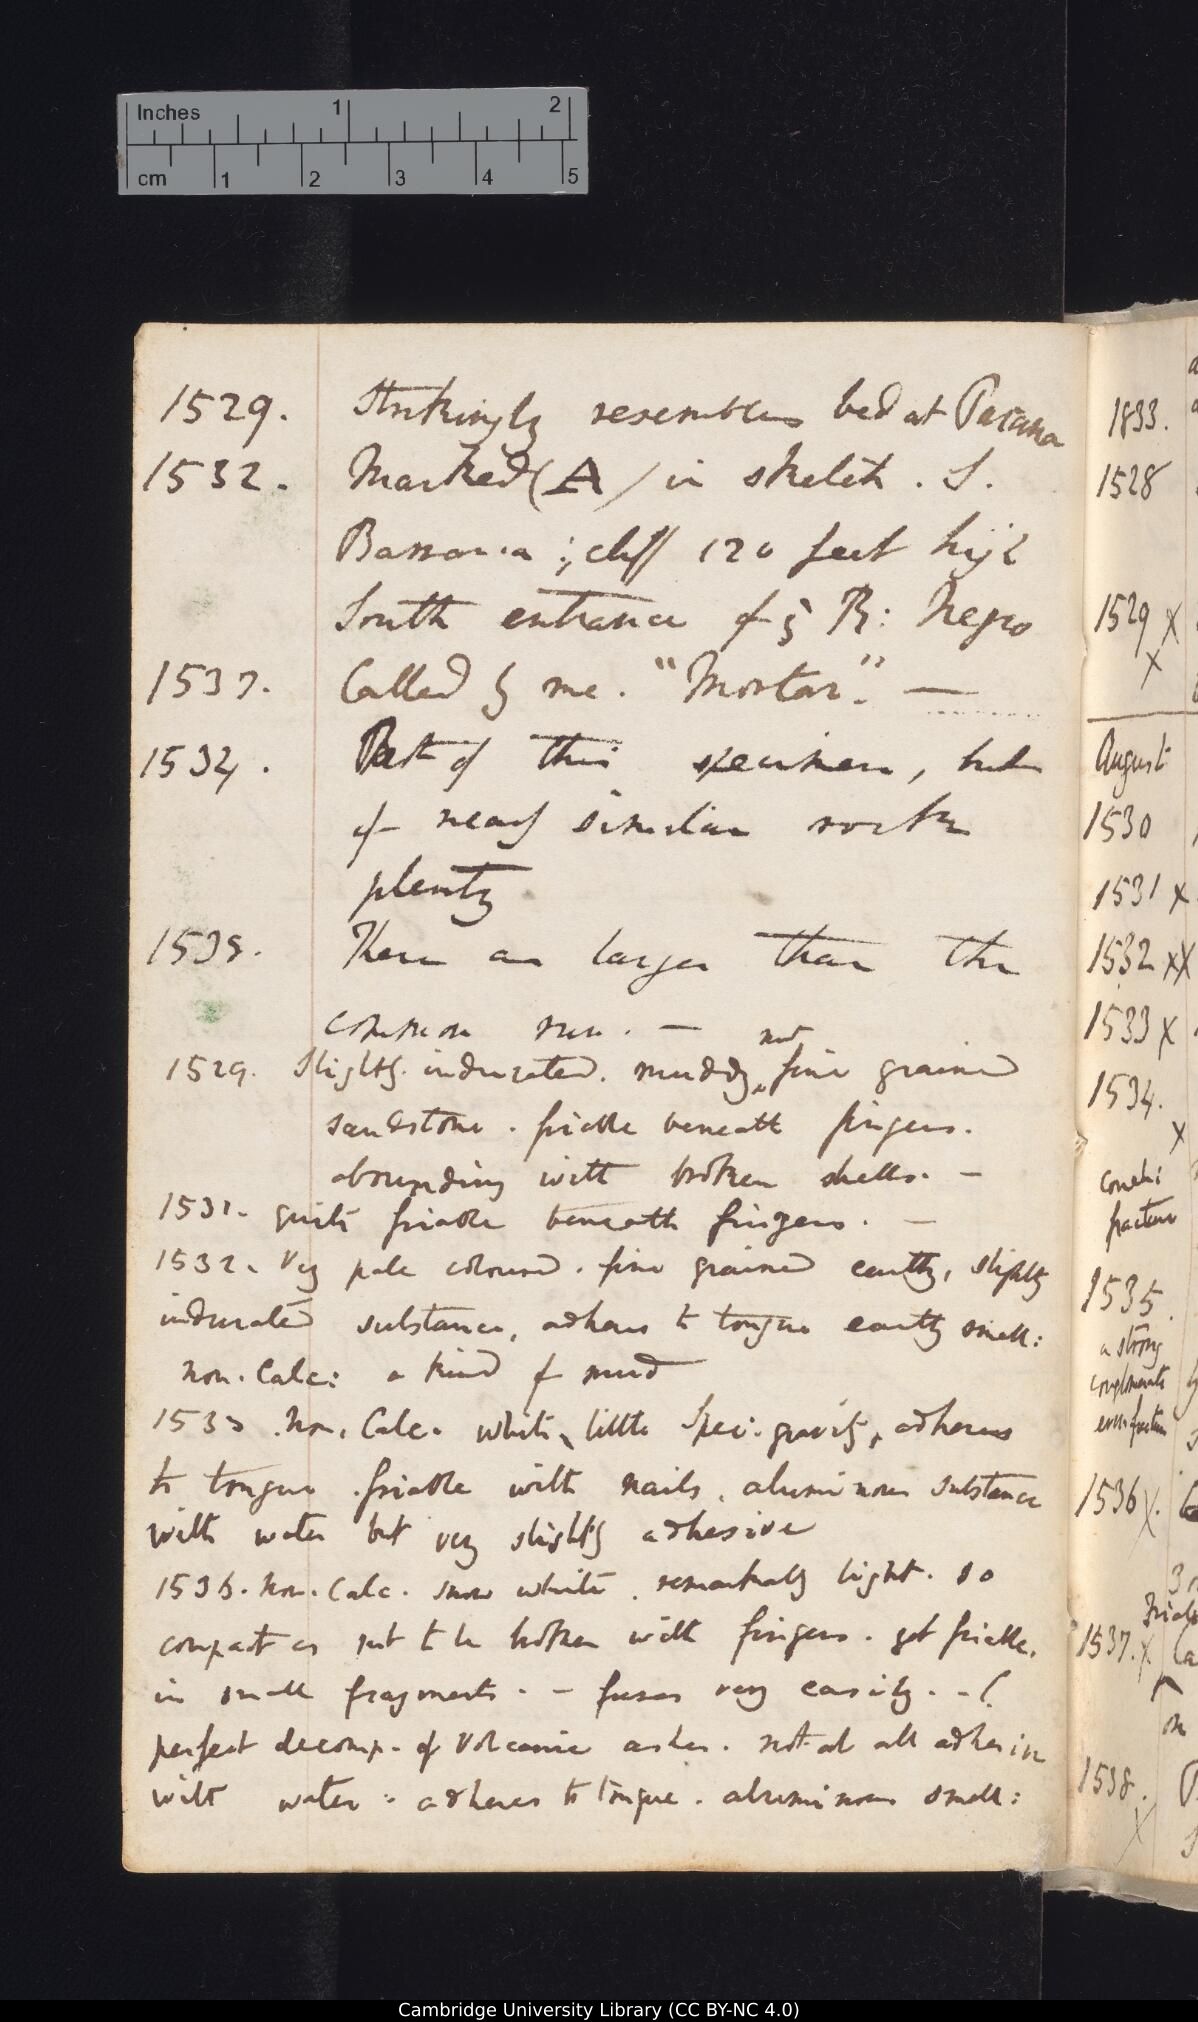 Inches 1 2
cm 1 2 3 4 5
1529. Strikingly resembles bed at Parana
1532. Marked (A) in sketch. S.
Barranca; cliff 120 feet high
South entrance of R: Negro
1537. Called by me. "Mortar". —
1534. Part of this specimen, but
of nearly similar rocks
plenty
1535. There are larger than the
common run. —
1529. Slightly indurated. muddy, not fine grained
sandstone. friable beneath fingers.
abounding with broken shells. —
1531. quite friable beneath fingers. —
1532. Very pale coloured. fine grained earthy, slightly
indurated substance, adheres to tongue earthy smell:
non. Calc: a kind of mud
1533. Non. Calc. white, little Spec. gravity, adheres
to tongue. friable with nails, aluminous substance
with water but very slightly adhesive
1536. Non. Calc. snow white. remarkably light. so
compact as not to be broken with fingers. yet friable.
in small fragments. — fuses very easily. - (.
perfect decomp. of Volcanic ashes. not at all adhesive
with water: adheres to tongue. aluminous smell:
1833.
1528
1529 X
X
August
1530
1531 X
1532 XX
1533 X
1534.
X
conch:
fracture
1535.
a strong
conglomerate
even fracture
1536 X.
1537. X
1538.
X
Cambridge University Library (CC BY-NC 4.0)